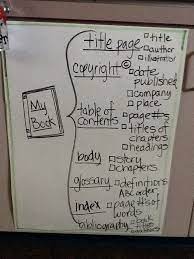 My Book
title page
□ title
□ author
□ illustrator
copyright ©
□ date published
□ company
□ place
table of contents
□ page #s
□ titles of chapters
□ headings
body
□ story
□ chapters
glossary
□ definitions
ABC order
index
□ page #s of words
bibliography
□ book